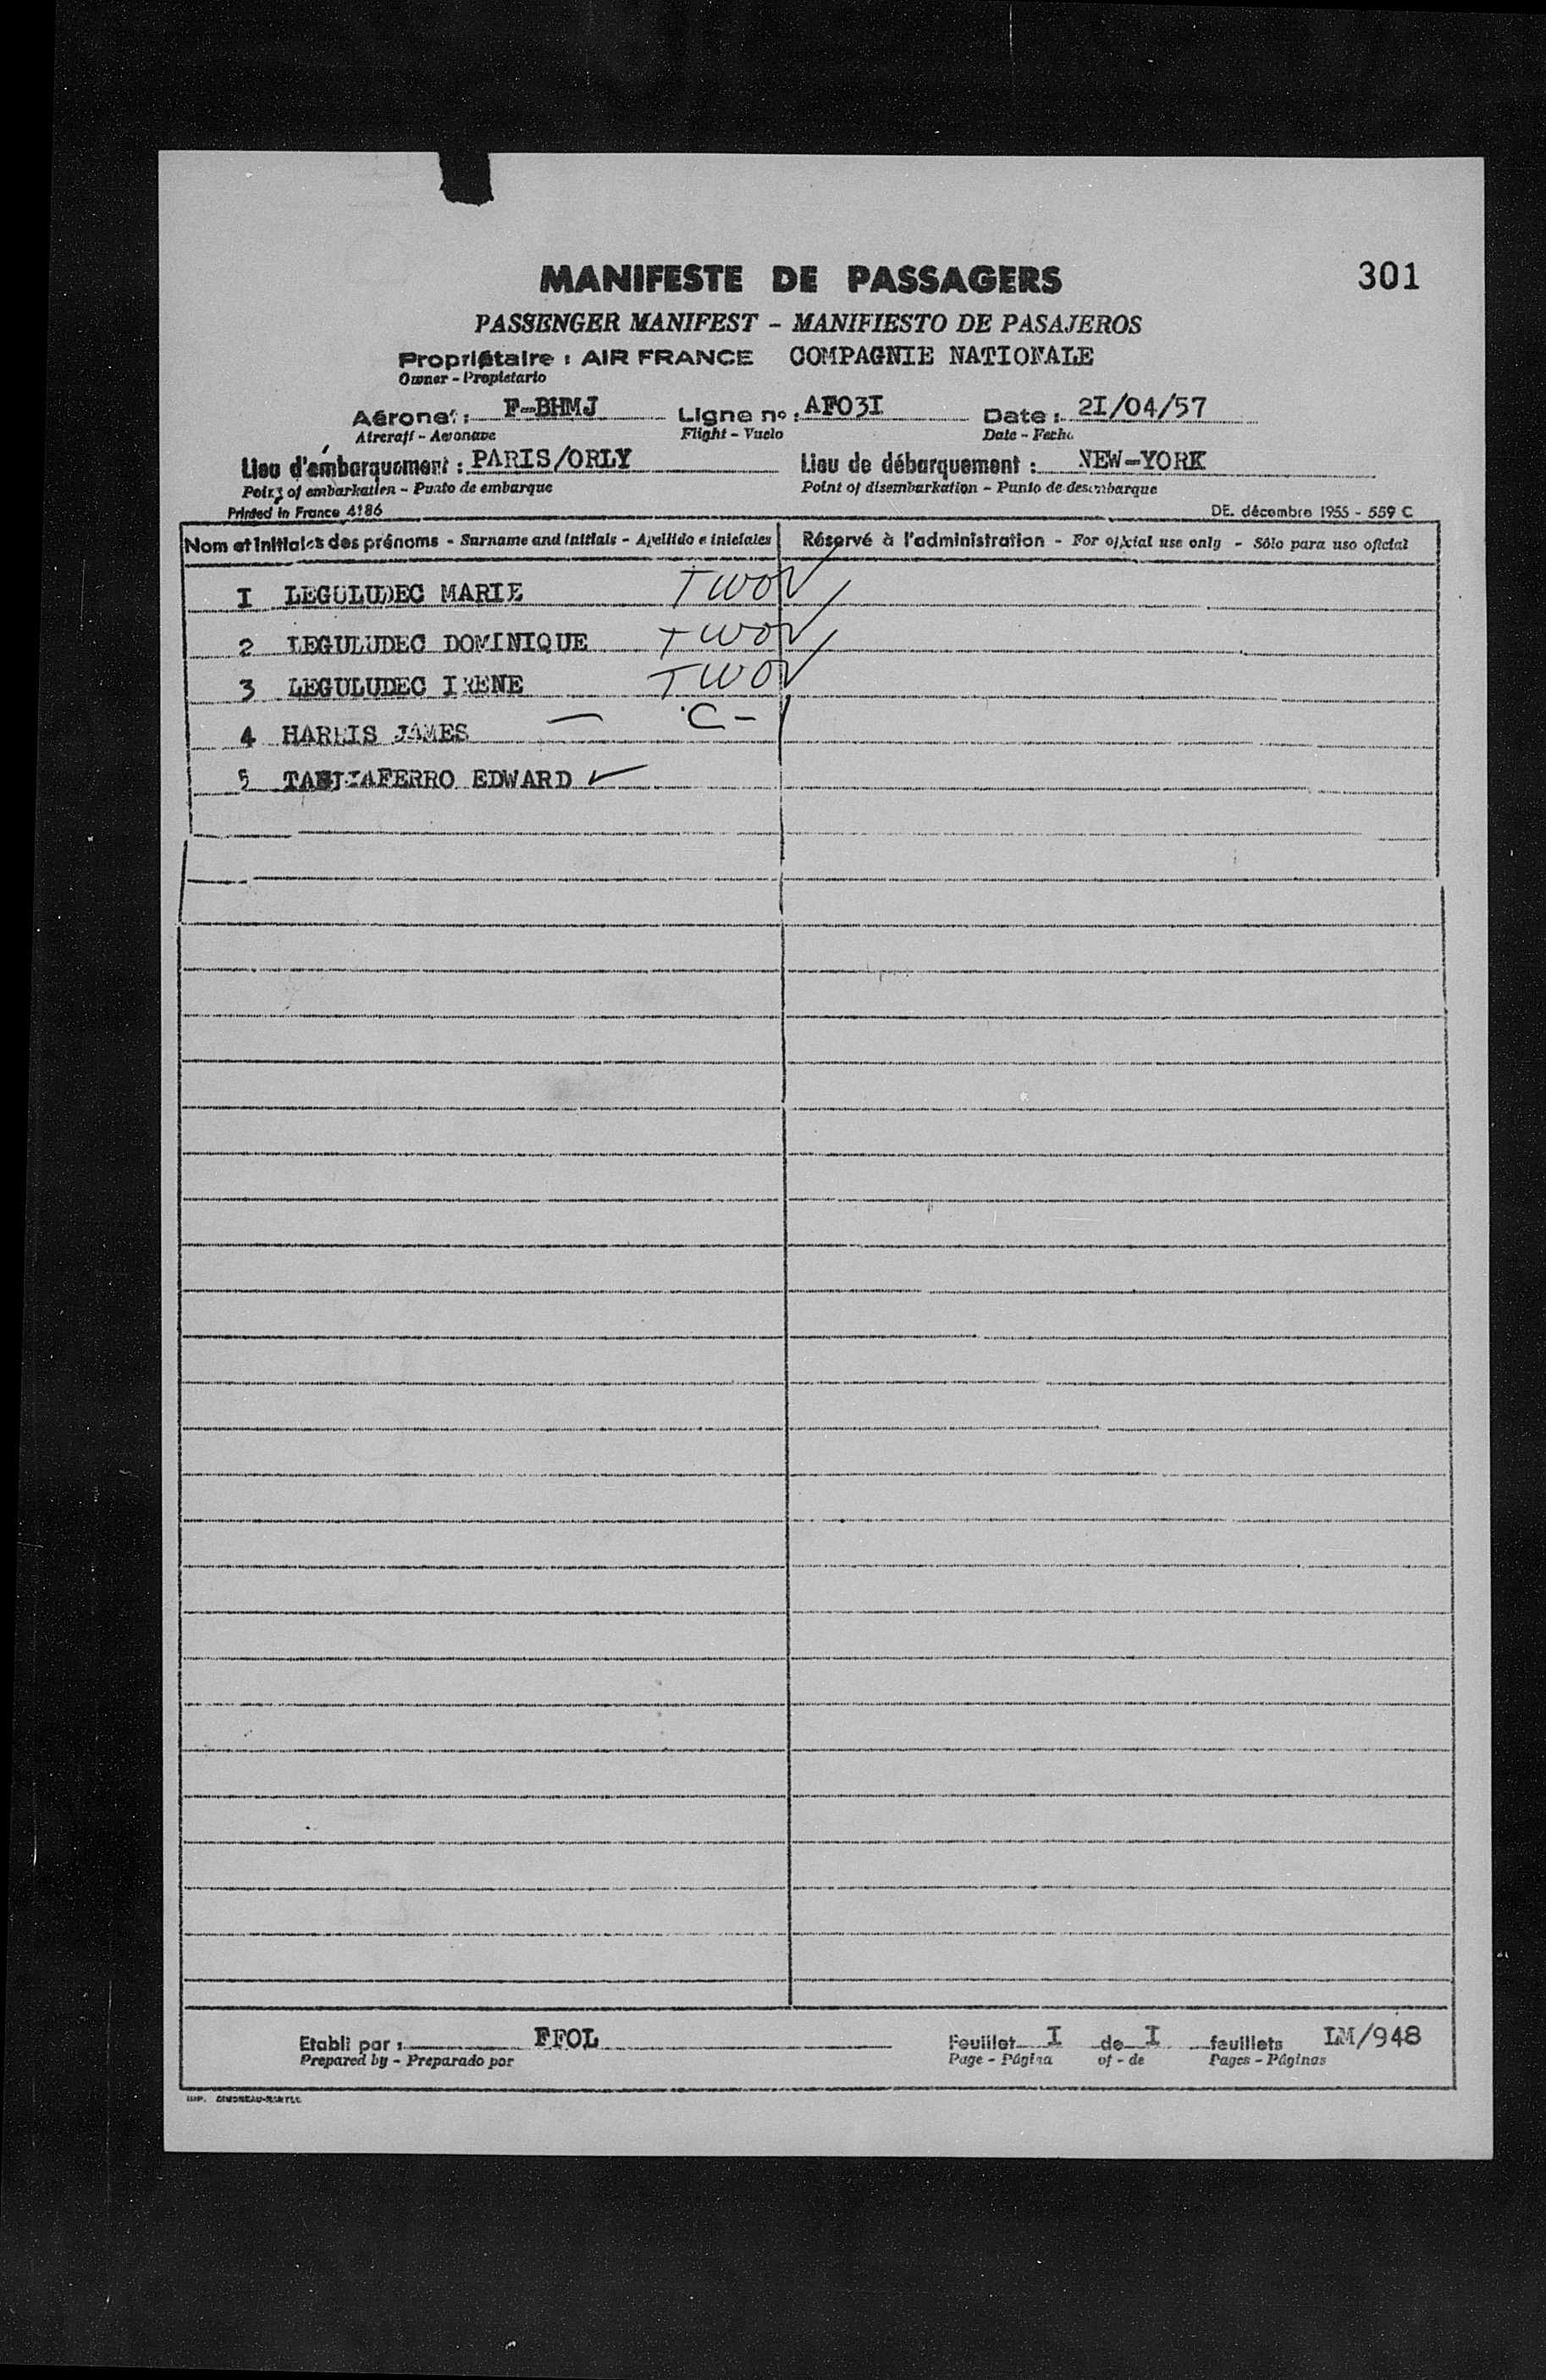 MANIFESTE DE PASSAGERS 301
PASSENGER MANIFEST - MANIFIESTO DE PASAJEROS
Propriétaire : AIR FRANCE COMPAGNIE NATIONALE
Owner - Propietario
Aéronef : F-BHMJ Ligne no : AF03I Date : 2I/04/57
Aircraft - Aeronave Flight - Vuelo Date - Fecha
Lieu d'embarquement : PARIS/ORLY Lieu de débarquement : NEW-YORK
Point of embarkation - Punto de embarque Point of disembarkation - Punto de desembarque
Printed in France 4186 DE. décembre 1955 - 559 C
Nom et initiales des prénoms - Surname and initials - Apellido e iniciales Réservé à l'administration - For official use only - Sólo para uso oficial
I LEGULUDEC MARIE TWOV
2 LEGULUDEC DOMINIQUE TWOV
3 LEGULUDEC IRENE TWOV
4 HARRIS JAMES — C -
5 EDWARD ✓
Etabli par : FFOL Feuillet I de I feuillets LM/948
Prepared by - Preparado por Page - Página of - de Pages - Páginas
IMP.